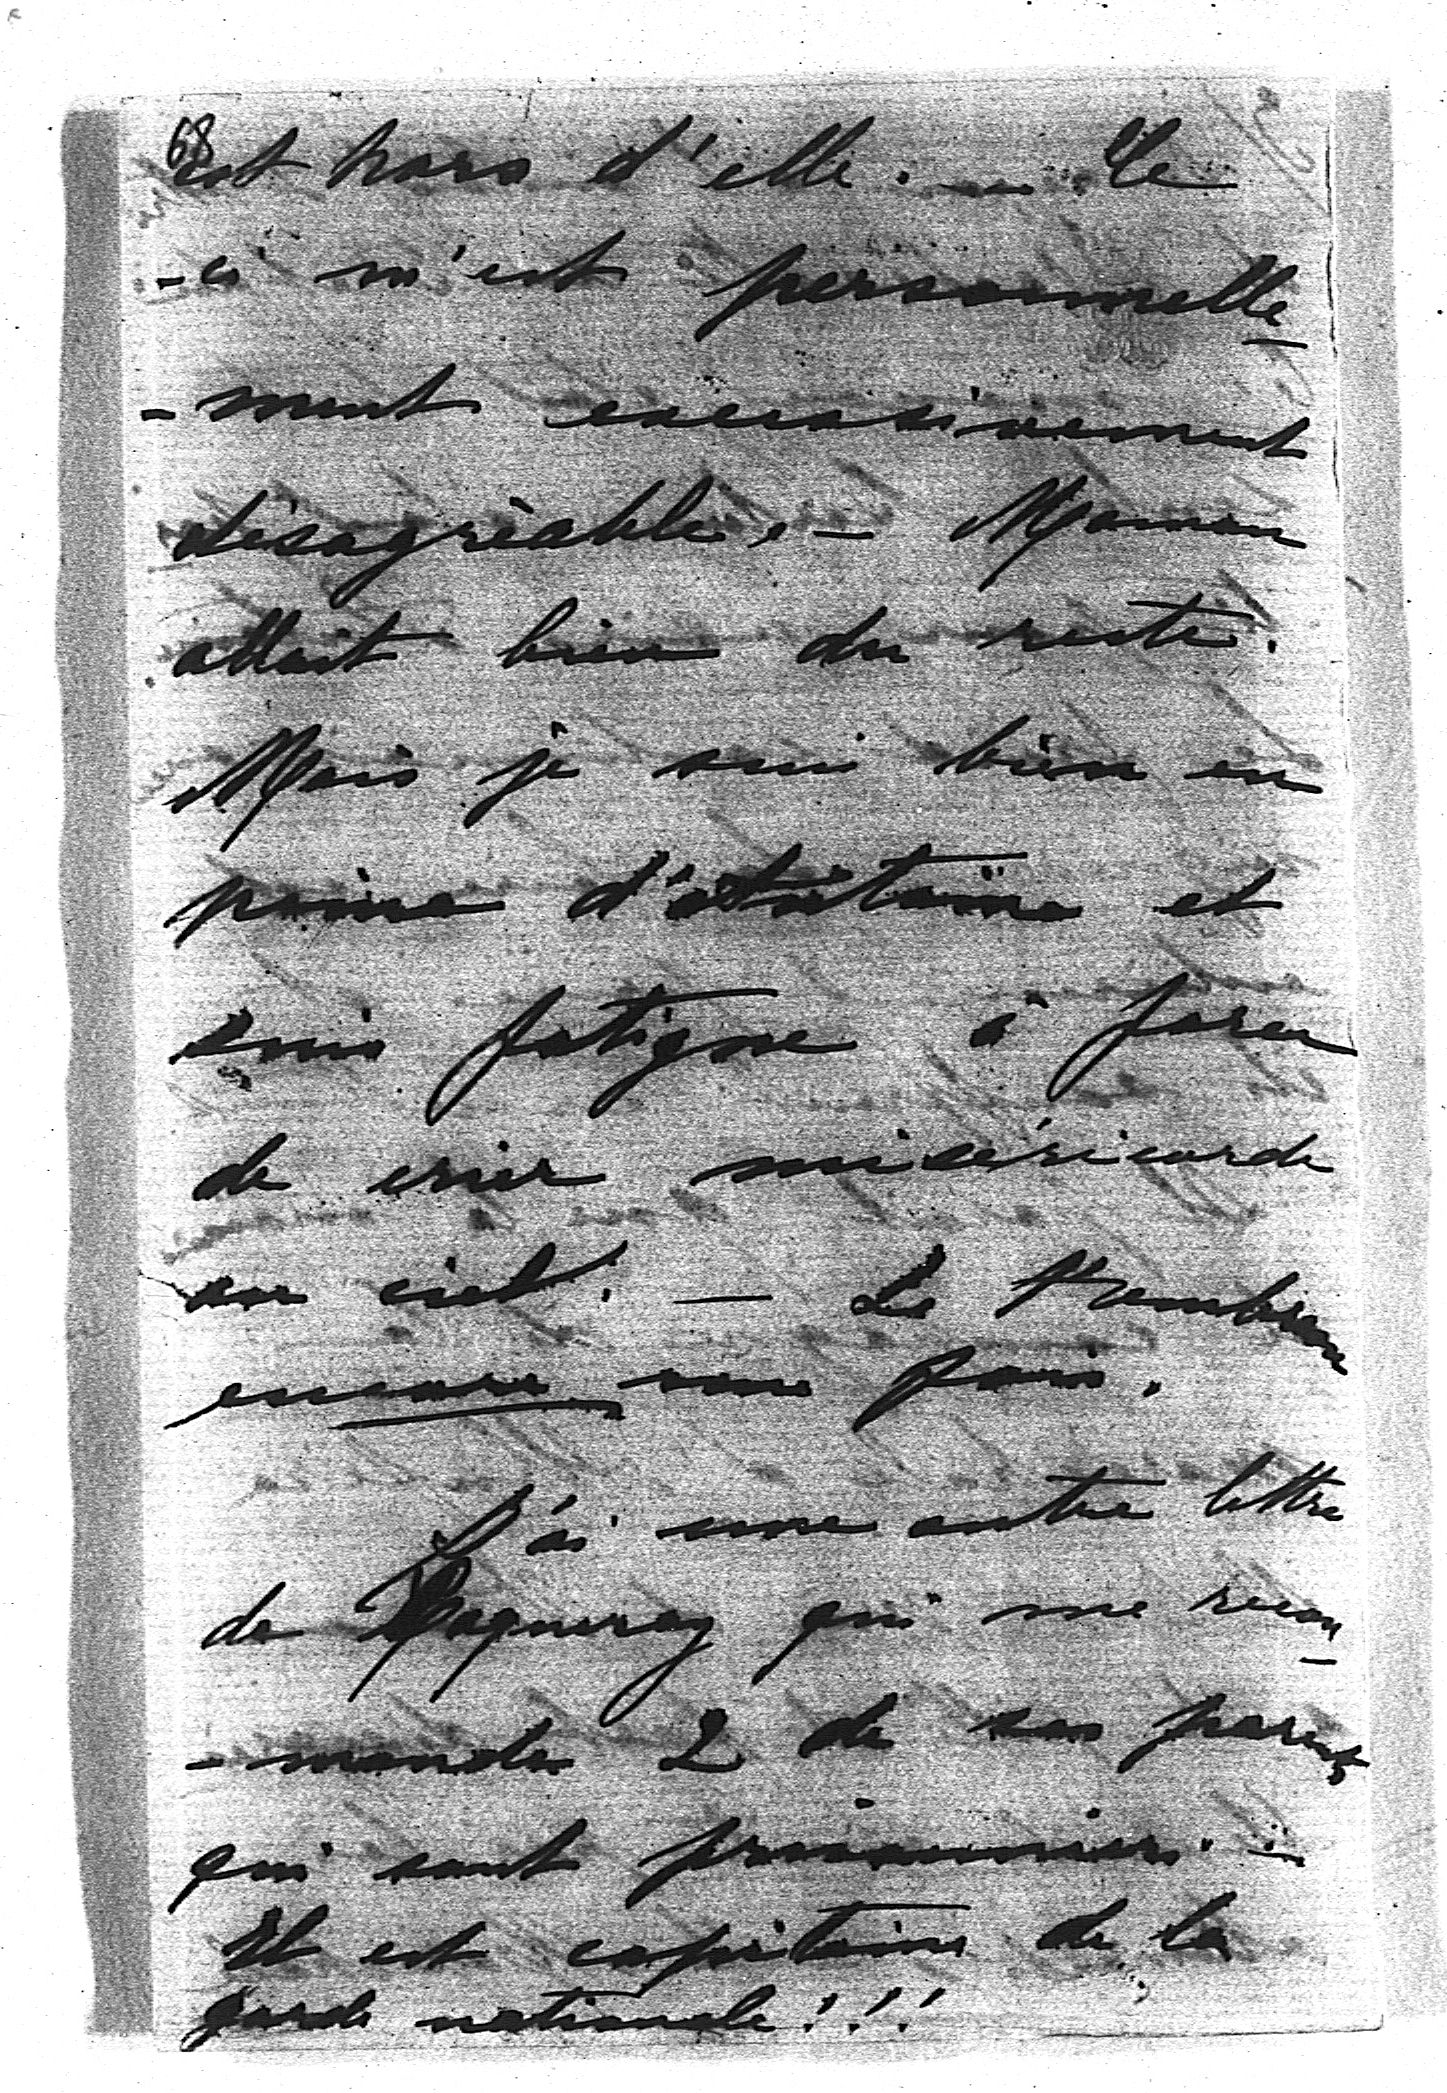 68
est hors d'elle. — Ce
-ci m'est personnelle
-ment excessivement
désagréable. — Maman
allait bien du reste.
Mais je suis bien en
peine d'Antoine et
suis fatigué à force
de crier miséricorde
au ciel. — Le
encore une fois.
J'ai une autre lettre
de qui me recom
-mande 2 de ses parents
qui sont prisonniers. —
Il est capitaine de la
garde nationale!!!